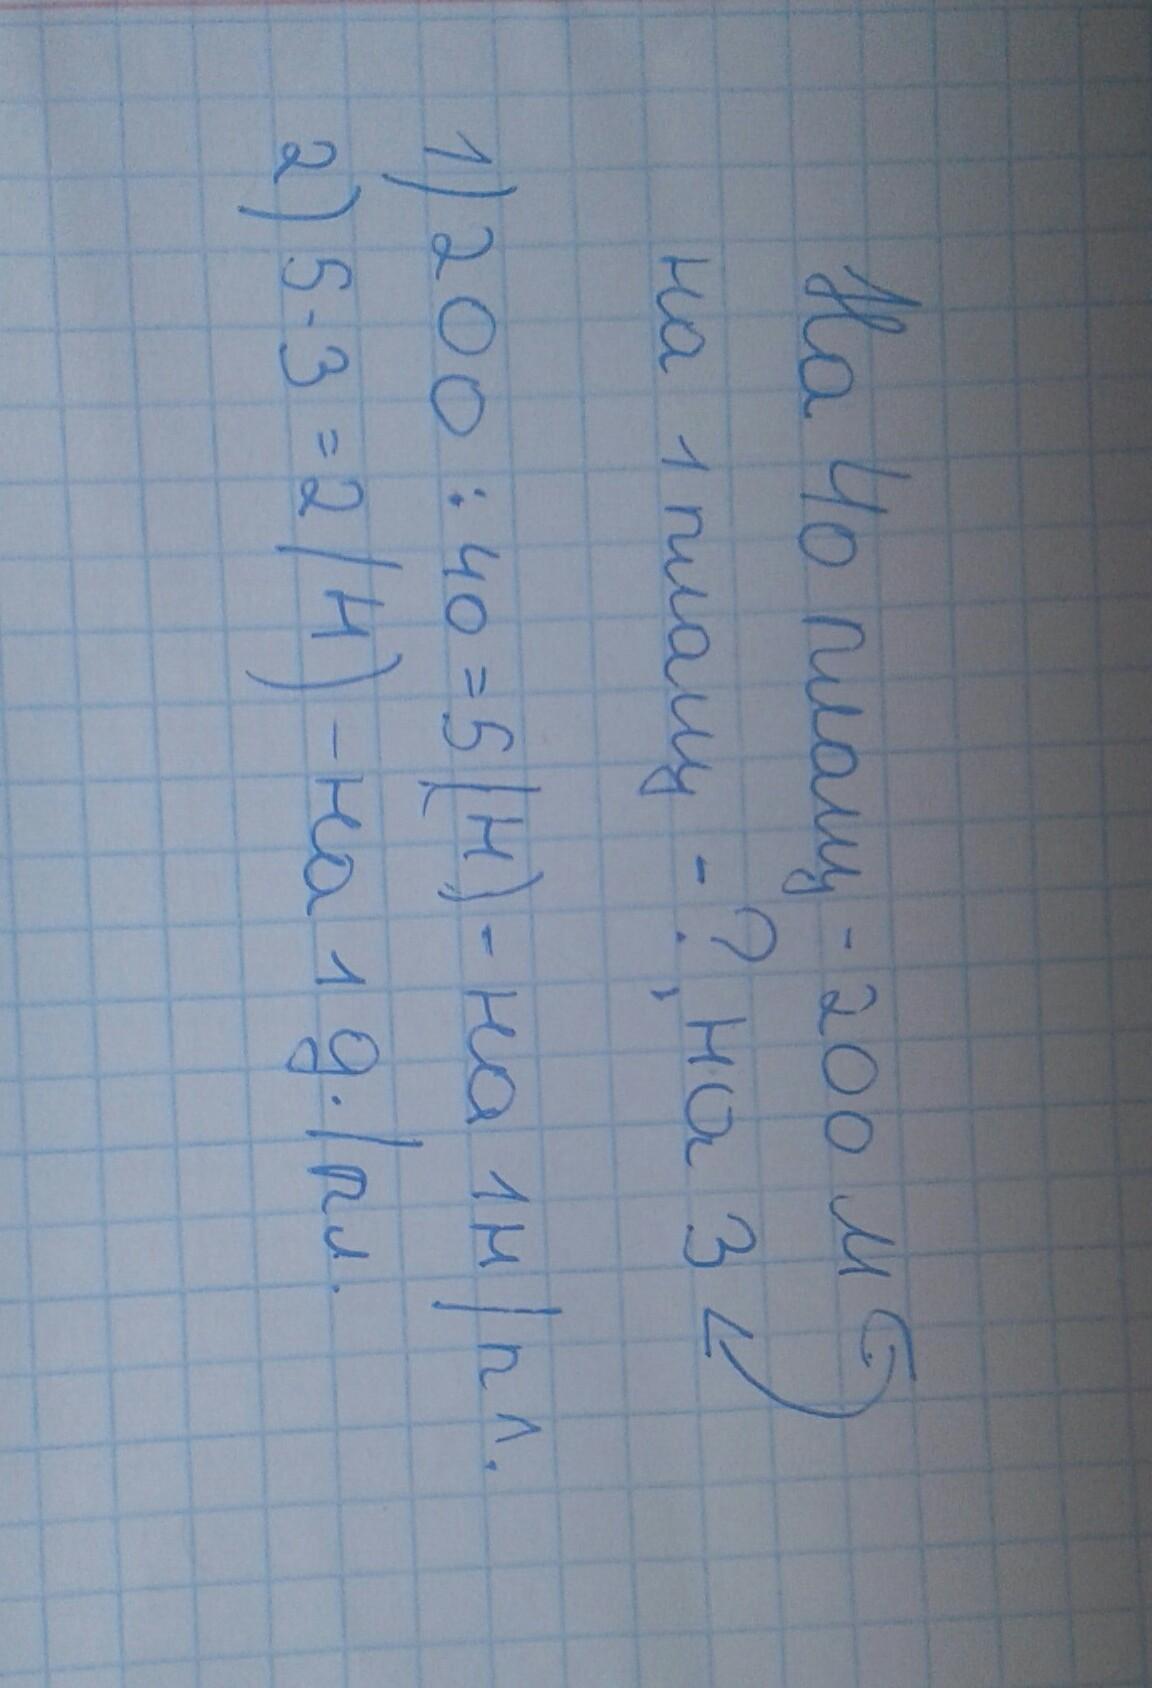 На 40 плащ - 200 м
на 1 плащ - ?, на 3
1) 200 : 40 = 5 (м) - на 1м/пл.
2) 5-3 = 2 (м) - на 1 д./пл.